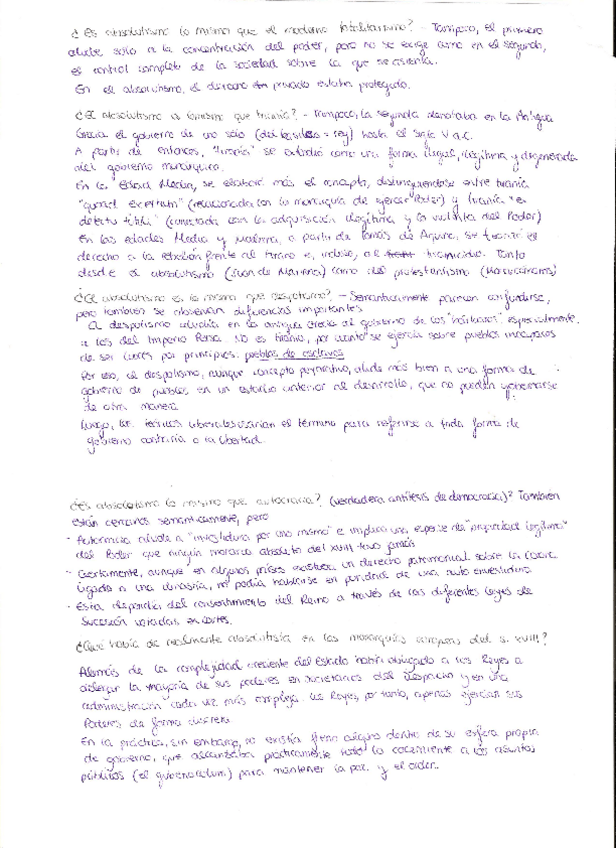 ¿Es absolutismo lo mismo que el moderno totalitarismo? - Tampoco, el primero
alude sólo a la concentración del poder, pero no se exige como en el segundo,
el control completo de la sociedad sobre la que se asienta.
En el absolutismo, el derecho privado estaba protegido.
¿El absolutismo lo mismo que tiranía? - Tampoco, la segunda denotaba en la Antigua
Grecia el gobierno de uno sólo (del basileus = rey) hasta el siglo V a.C.
A partir de entonces, "tiranía" se extendió como una forma ilegal, ilegítima y degenerada
del gobierno monárquico.
En la Edad Media, se elaboró más el concepto, distinguiéndose entre tiranía
"quoad exercitum" (relacionada con la manera de ejercer Poder) y tiranía "ex
defectu tituli" (conectada con la adquisición ilegítima y violenta del Poder)
En las edades Media y Moderna, a partir de Tomás de Aquino, se teorizó el
derecho a la rebelión frente al tirano e, incluso, al tiranicidio. Tanto
desde el absolutismo (Juan de Mariana) como del protestantismo (Monarcómacos)
¿El absolutismo es lo mismo que despotismo? - Semánticamente parecen confundirse,
pero también se observan diferencias importantes.
El despotismo aludía en la antigua Grecia al gobierno de los "bárbaros" especialmente,
a los del Imperio Persa. No es tiranía, por cuanto se ejercía sobre pueblos incapaces
de ser libres por principios: pueblos de esclavos
Por eso, el despotismo, aunque concepto peyorativo, alude más bien a una forma de
gobierno de pueblos en un estadio anterior al desarrollo, que no pueden gobernarse
de otra manera
Luego, los teóricos liberales usarían el término para referirse a toda forma de
gobierno contraria a la libertad.
¿Es absolutismo lo mismo que autocracia? (verdadera antítesis de democracia)? También
están cercanos semánticamente, pero
· Autocracia aludía a "investidura por uno mismo" e implica una especie de "propiedad legítima"
del Poder que ningún monarca absoluto del XVIII tuvo jamás
· Ciertamente, aunque en algunos países existiera un derecho patrimonial sobre la Corona
ligado a una dinastía, no podía hablarse en puridad de una auto investidura
· Esta dependía del consentimiento del Reino a través de las diferentes leyes de
Sucesión votadas en Cortes.
¿Qué había de realmente absolutista en las monarquías europeas del s. XVIII?
Además de la complejidad creciente del Estado había obligado a los Reyes a
delegar la mayoría de sus poderes en secretarios del Despacho y en una
administración cada vez más compleja. Los Reyes, por tanto, apenas ejercían sus
Poderes de forma directa
En la práctica, sin embargo, no existía freno alguno dentro de su esfera propia
de gobierno, que alcanzaba prácticamente todo lo concerniente a los asuntos
públicos (el gubernaculum) para mantener la paz y el orden.